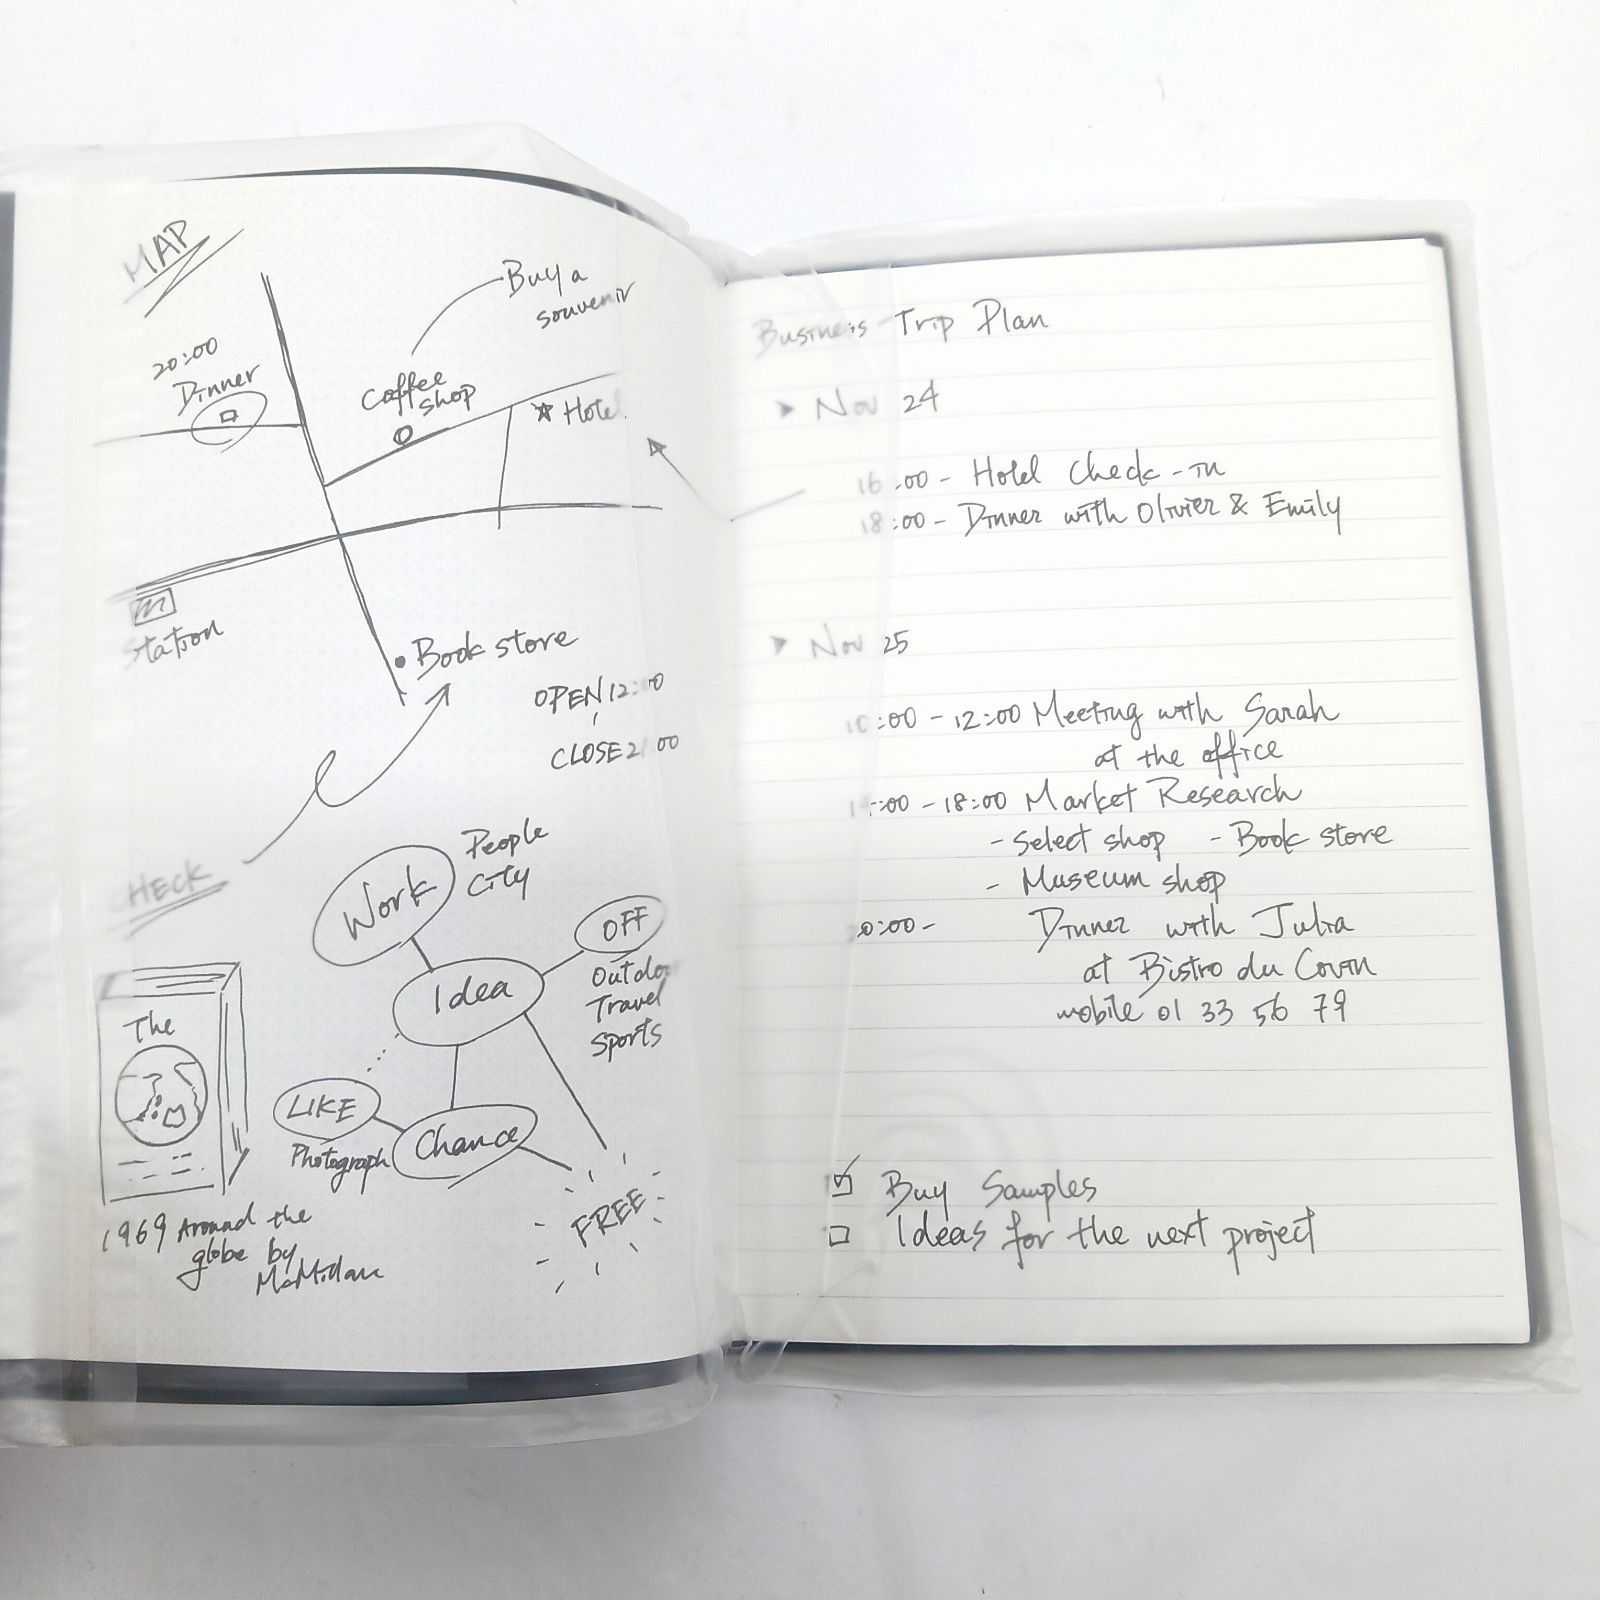 MAP
Buy a
souvenir
20:00
Dinner
Coffee
shop
Hotel
Station
Book store
OPEN 12:00
CLOSE 21:00
CHECK
People
City
Work
OFF
Idea
Outdoor
Travel
Sports
The
LIKE
Photograph
Chance
FREE
1969 Around the
globe by
Business Trip Plan
Nov 24
16:00 - Hotel Check-in
18:00 - Dinner with Olivier & Emily
Nov 25
10:00 - 12:00 Meeting with Sarah
at the office
:00 - 18:00 Market Research
- Select shop - Book store
- Museum shop
20:00 - Dinner with Julia
at Bistro du Covin
mobile 01 33 56 79
☑ Buy Samples
☐ Ideas for the next project